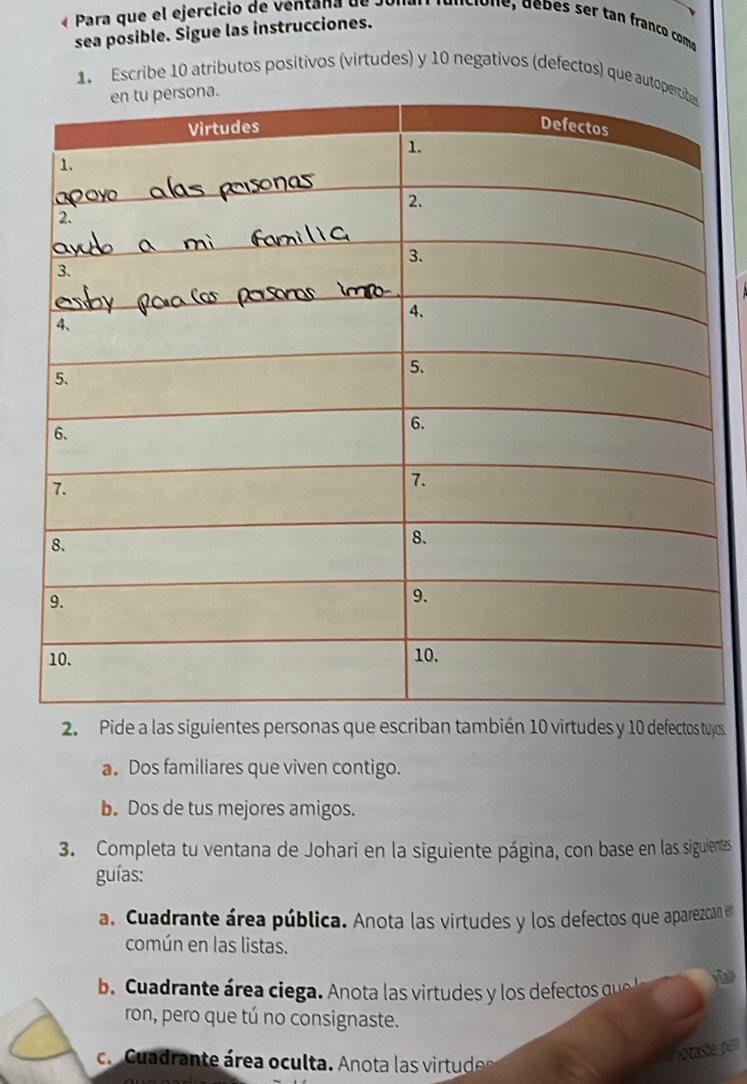 Para que el ejercicio de ventana de debes ser tan franco como
sea posible. Sigue las instrucciones.
1. Escribe 10 atributos positivos (virtudes) y 10 negativos (defectos) que autopercibes
en tu persona.
Virtudes Defectos
1. 1.
apoyo alas personas
2. 2.
ayudo a mi familia
3. 3.
estoy para las personas impo-
4. 4.
5. 5.
6. 6.
7. 7.
8. 8.
9. 9.
10. 10.
2. Pide a las siguientes personas que escriban también 10 virtudes y 10 defectos tuyos.
a. Dos familiares que viven contigo.
b. Dos de tus mejores amigos.
3. Completa tu ventana de Johari en la siguiente página, con base en las siguientes
guías:
a. Cuadrante área pública. Anota las virtudes y los defectos que aparezcan en
común en las listas.
b. Cuadrante área ciega. Anota las virtudes y los defectos que
ron, pero que tú no consignaste.
c. Cuadrante área oculta. Anota las virtudes